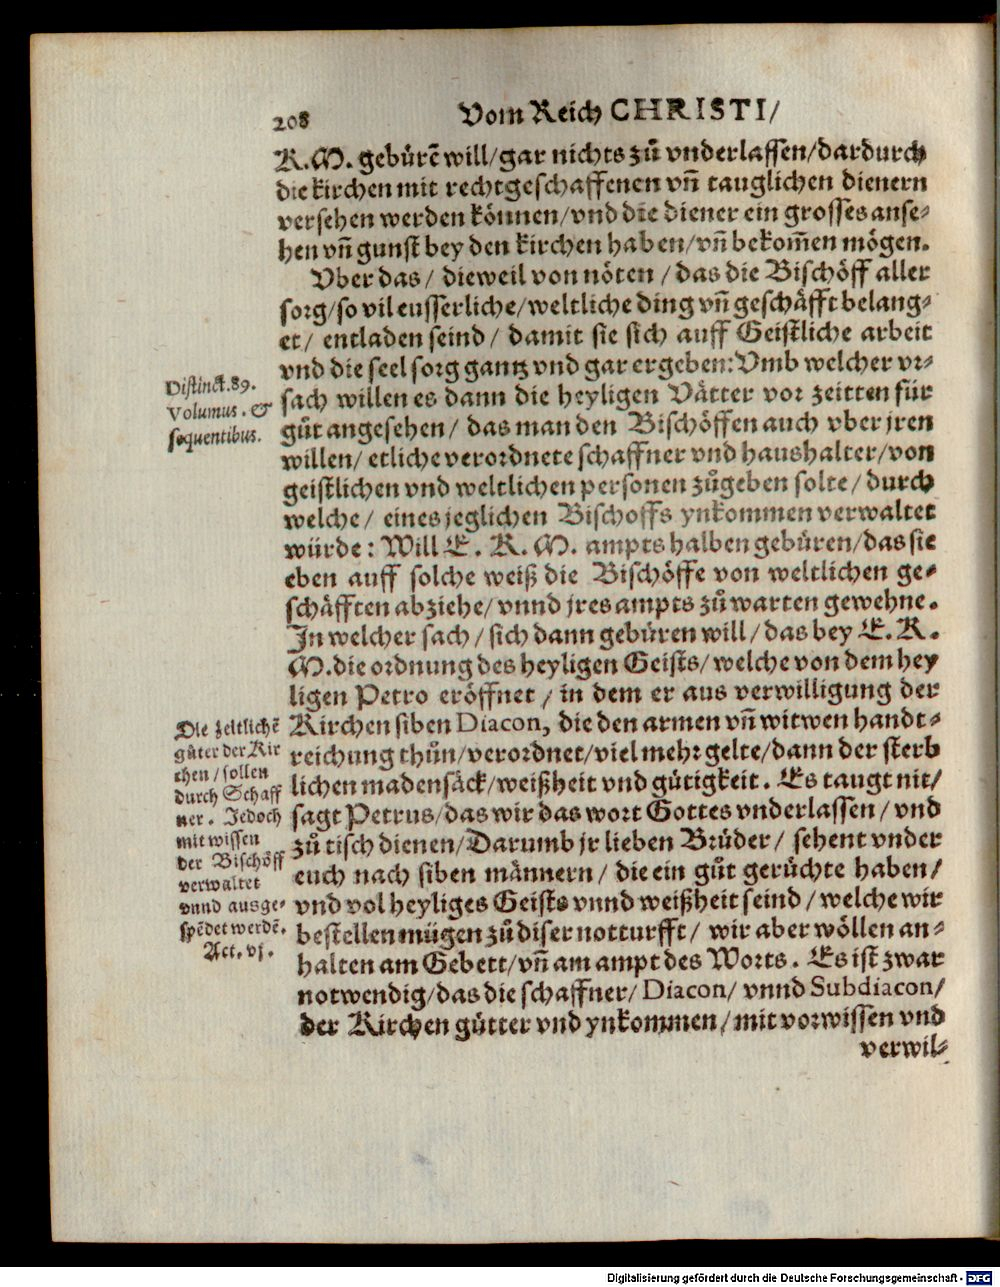 208 Vom Reich CHRISTI/
K. M. gebürē will/gar nichts zů vnderlassen/dardurch
die kirchen mit rechtgeschaffenen vñ tauglichen dienern
versehen werden können/vnd die diener ein grosses anse-
hen vñ gunst bey den kirchen haben/vñ bekom̃en mögen.
Vber das/ dieweil von nöten/das die Bischöff aller
sorg/so vil eusserliche/weltliche ding vñ geschäfft belang-
et/ entladen seind/ damit sie sich auff Geistliche arbeit
vnd die seel sorg gantz vnd gar ergeben: Vmb welcher vr-
sach willen es dann die heyligen Vätter vor zeitten für
gůt angesehen/ das man den Bischöffen auch vber jren
willen/ etliche verordnete schaffner vnd haushalter/von
geistlichen vnd weltlichen personen zůgeben solte/ durch
welche/ eines jeglichen Bischoffs ynkommen verwaltet
würde: Will E. K. M. ampts halben gebüren/das sie
eben auff solche weiß die Bischöffe von weltlichen ge-
schäfften abziehe/vnnd jres ampts zů warten gewehne.
In welcher sach/sich dann gebüren will/das bey E. K.
M. die ordnung des heyligen Geists/welche von dem hey
ligen Petro eröffnet/in dem er aus verwilligung der
Kirchen siben Diacon, die den armen vñ witwen handt-
reichung thůn/verordnet/viel mehr gelte/dann der sterb
lichen madensäck/weißheit vnd gütigkeit. Es taugt nit/
sagt Petrus/das wir das wort Gottes vnderlassen/vnd
zů tisch dienen/Darumb jr lieben Brüder/ sehent vnder
euch nach siben männern/ die ein gůt gerüchte haben/
vnd vol heyliges Geists vnnd weißheit seind/welche wir
bestellen mügen zů diser notturfft/ wir aber wöllen an-
halten am Gebett/vñ am ampt des Worts. Es ist zwar
notwendig/das die schaffner/Diacon/ vnnd Subdiacon/
der Kirchen gütter vnd ynkommen/mit vorwissen vnd
verwil-
Distinct. 89.
Volumus. &
sequentibus.
Die zeitlichē
güter der Kir
chen/sollen
durch Schaff
ner. Jedoch
mit wissen
der Bischöff
verwaltet
vnnd ausge-
spēdet werdē.
Act. vj.
Digitalisierung gefördert durch die Deutsche Forschungsgemeinschaft - DFG